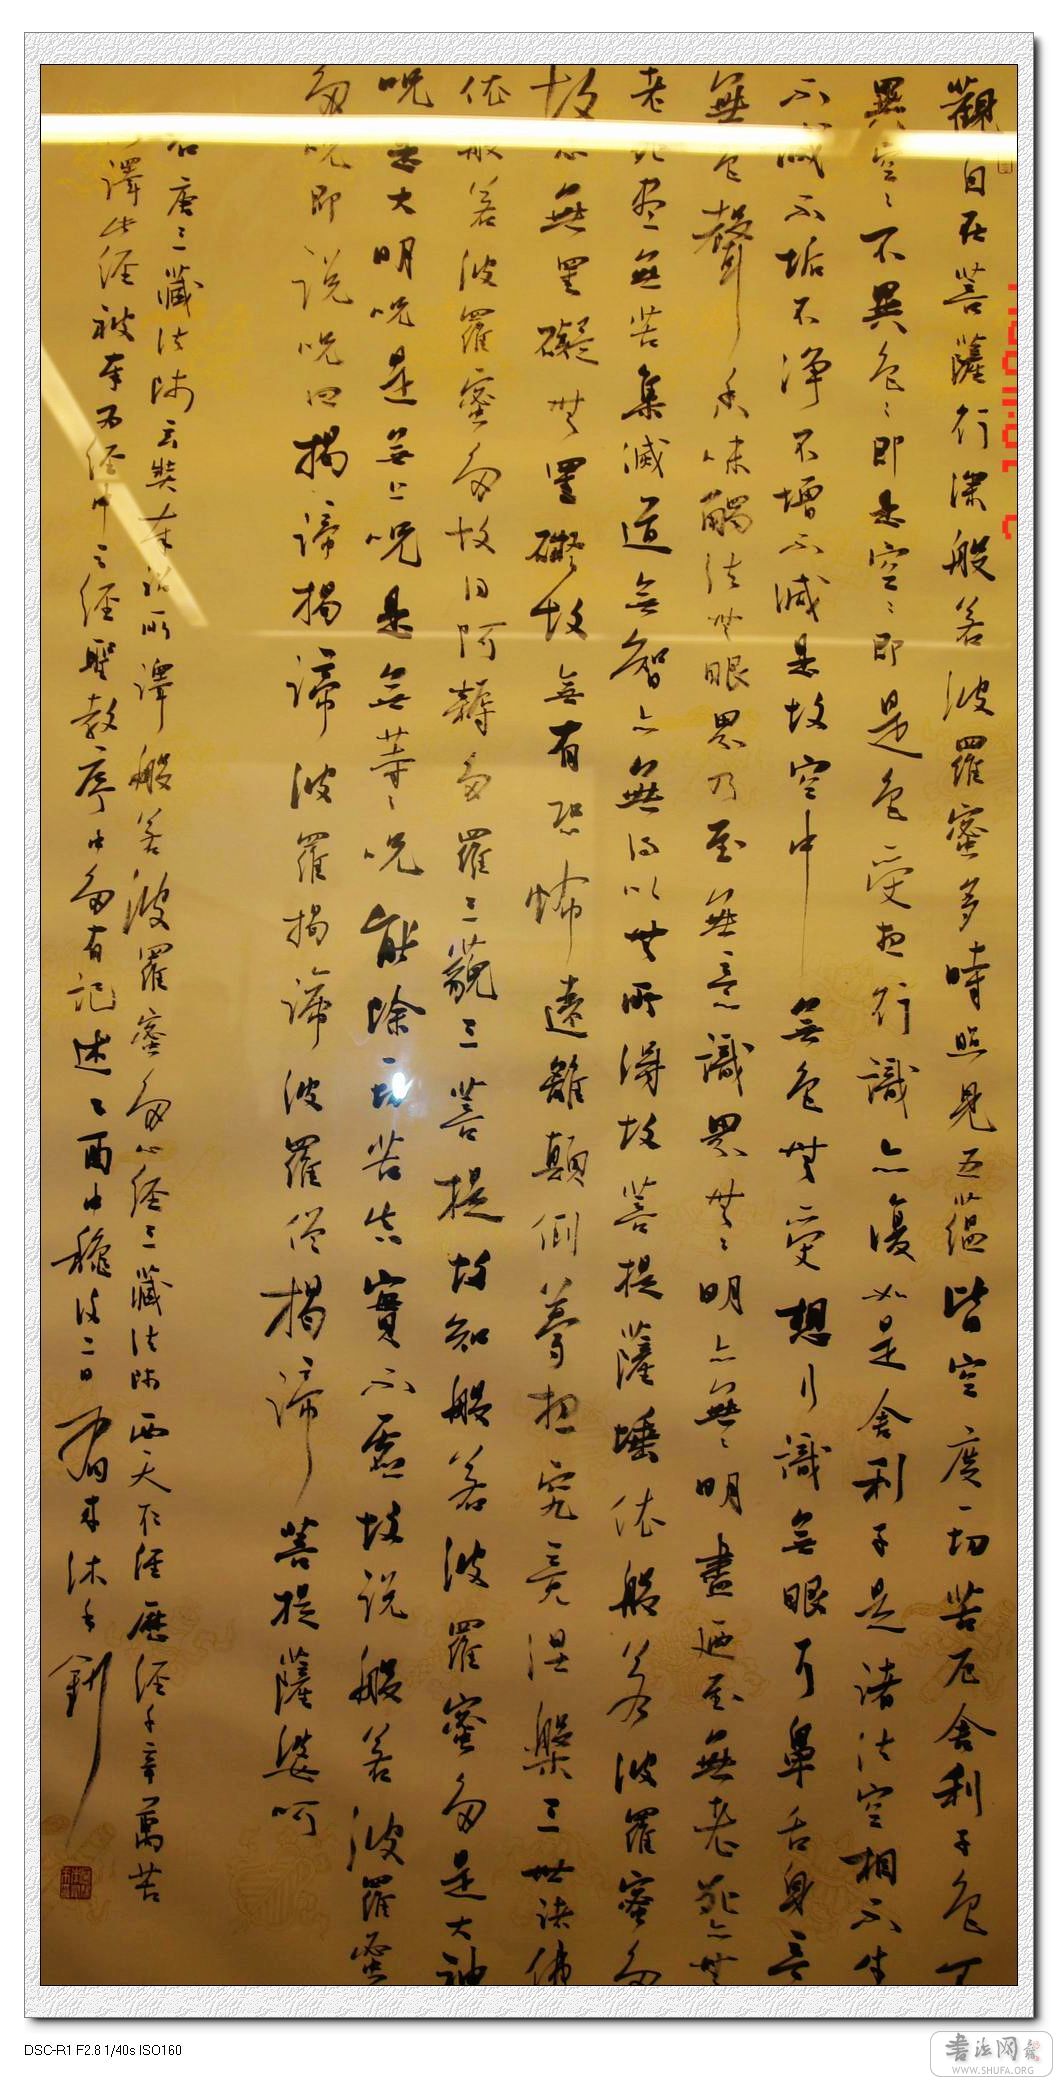 觀自在菩薩行深般若波羅蜜多時照見五蘊皆空度一切苦厄舍利子色不
異空〻不異色〻即是空〻即是色受想行識亦復如是舍利子是諸法空相不生
不滅不垢不淨不增不減是故空中無色無受想行識無眼耳鼻舌身意
無色聲香味觸法無眼界乃至無意識界無〻明亦無〻明盡乃至無老死亦無
老死盡無苦集滅道無智亦無得以無所得故菩提薩埵依般若波羅蜜多
故心無罣礙無罣礙故無有恐怖遠離顛倒夢想究竟涅槃三世諸佛
依般若波羅蜜多故得阿耨多羅三藐三菩提故知般若波羅蜜多是大神
咒是大明咒是無上咒是無等〻咒能除一切苦真實不虛故說般若波羅蜜
多咒即說咒曰揭諦揭諦波羅揭諦波羅僧揭諦菩提薩婆呵
唐三藏法師玄奘奉詔所譯般若波羅蜜多心經三藏法師西天取經歷經千辛萬苦
譯此經被奉為經中之經聖教序中多有記述乙酉中秋後二日
DSC-R1 F2.8 1/40s ISO160
書法网
WWW.SHUFA.ORG